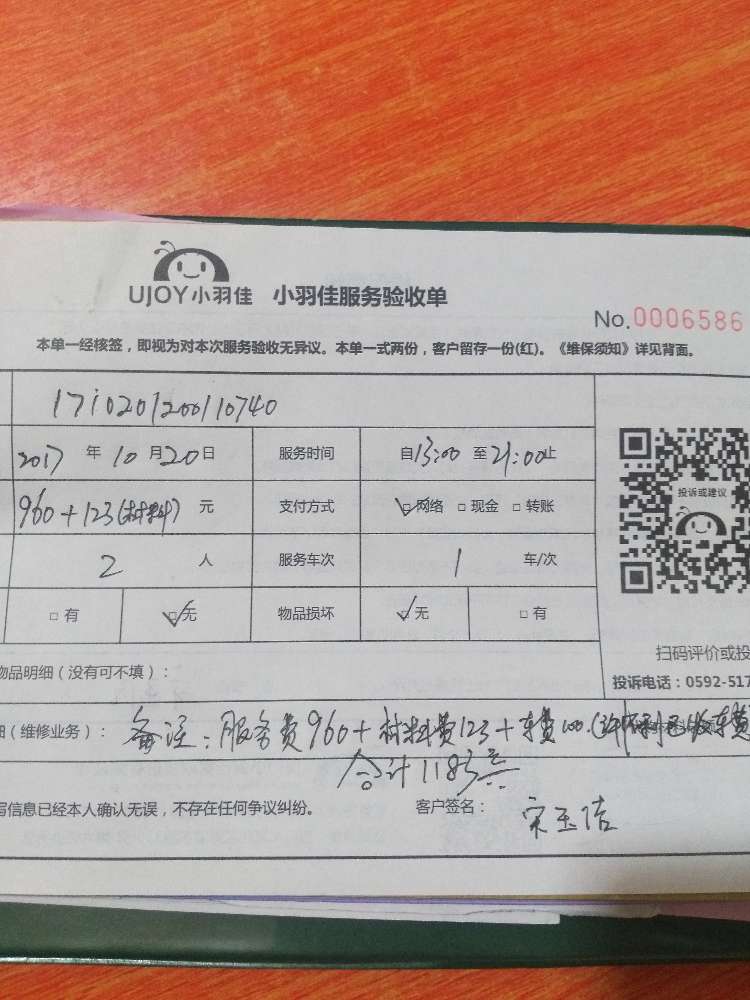 UJOY小羽佳 小羽佳服务验收单
No.0006586
本单一经核签，即视为对本次服务验收无异议。本单一式两份，客户留存一份(红)。《维保须知》详见背面。
1710201200110740
2017 年 10 月 20 日 服务时间 自13:00 至 21:00止
960+123(材料) 元 支付方式 ☑网络 □ 现金 □ 转账
2 人 服务车次 1 车/次
□ 有 ☑无 物品损坏 ☑无 □ 有
投诉或建议
扫码评价或投
投诉电话：0592-517
物品明细（没有可不填）：
（维修业务）： 备注：服务费960+材料费123+车费100.
合计1183
写信息已经本人确认无误，不存在任何争议纠纷。 客户签名：